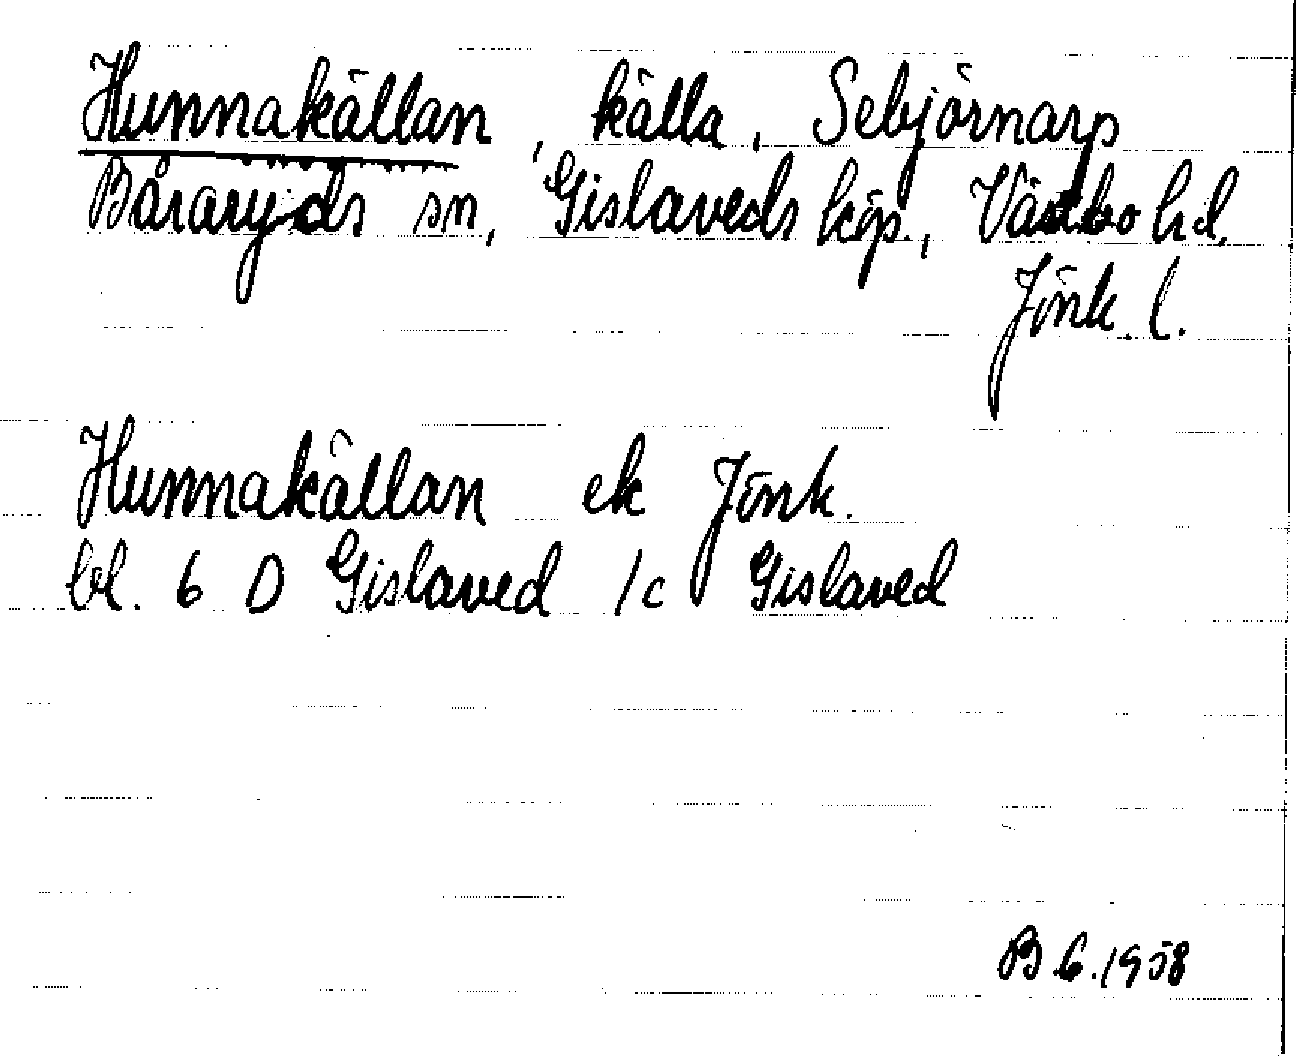 Hunnakällan, källa, Sebjörnarp
Båraryds sn, Gislaveds köp., Västbo hd,
Jönk. l.
Hunnakällan ek Jönk.
bl. 6 D Gislaved 1c Gislaved
B 6. 1958